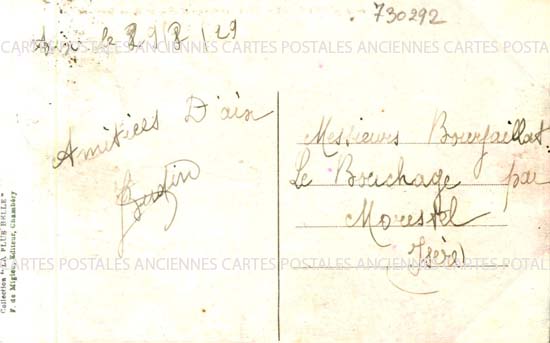 730292
Aix le 2/8/29
CARTES POSTALES ANCIENNES CARTES POSTALES ANCIENNES CARTES POSTALES ANCIENNES
Amitiées D'aix
Messieurs Bourjaillat
Le Bouchage par
Morestel
(Isère)
CARTES POSTALES ANCIENNES CARTES POSTALES ANCIENNES CARTES POSTALES ANCIENNES
Collection "LA PLUS BELLE"
F. de Miguel, Editeur, Chambéry